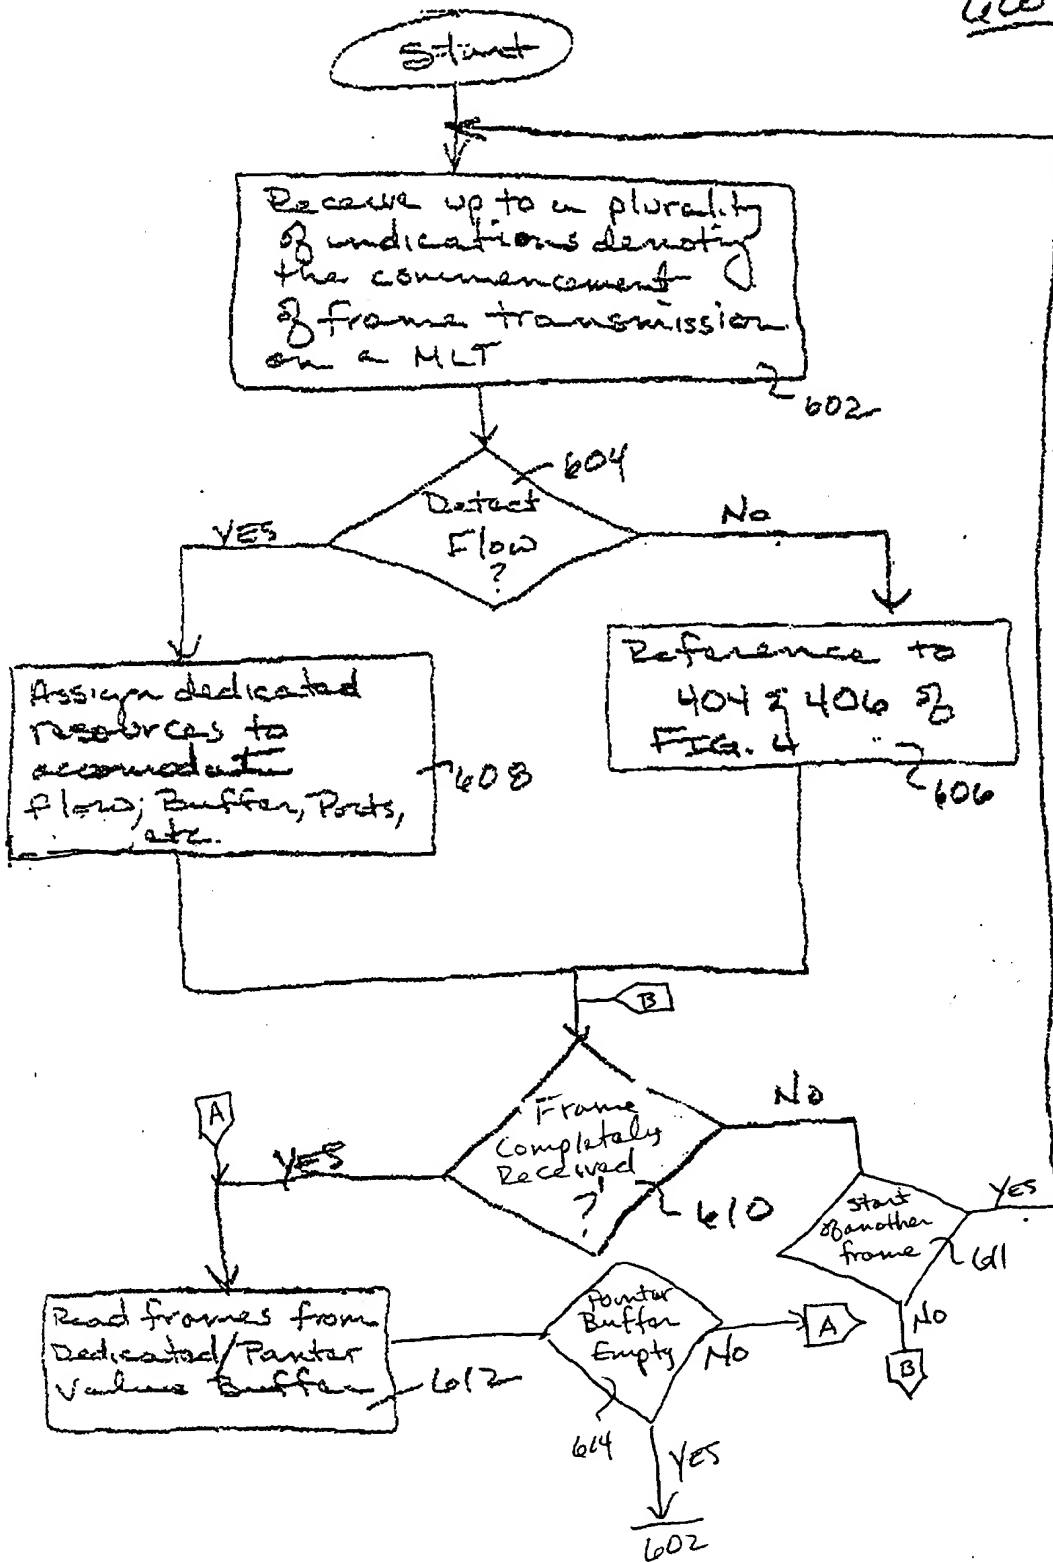 600
Start
Receive up to a plurality
of indications denoting
the commencement
of frame transmission
on a MLT
602
604
Detect
Flow
?
YES
No
Assign dedicated
resources to
accomodate
flow; Buffer, Ports,
etc.
608
Reference to
404 & 406 of
FIG. 4
606
B
A
Frame
Completely
Received
?
YES
No
610
Start
of another
frame
YES
611
NO
B
Read frames from
Dedicated/Pointer
Values Buffer
612
Pointer
Buffer
Empty
NO
A
614
YES
602